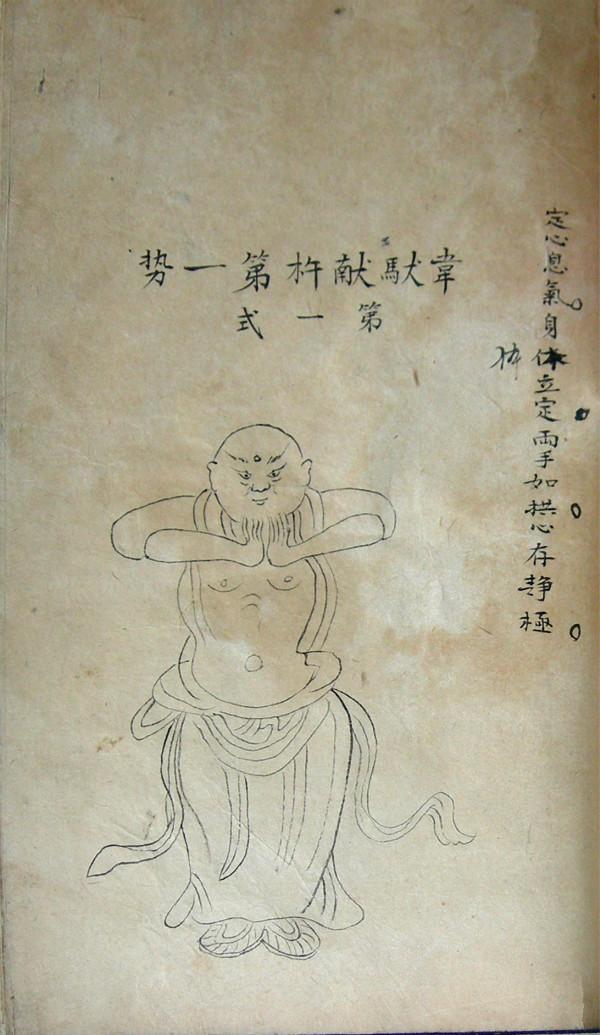 定心息氣身体立定兩手如拱心存静極
体
韋馱献杵第一势
第一式